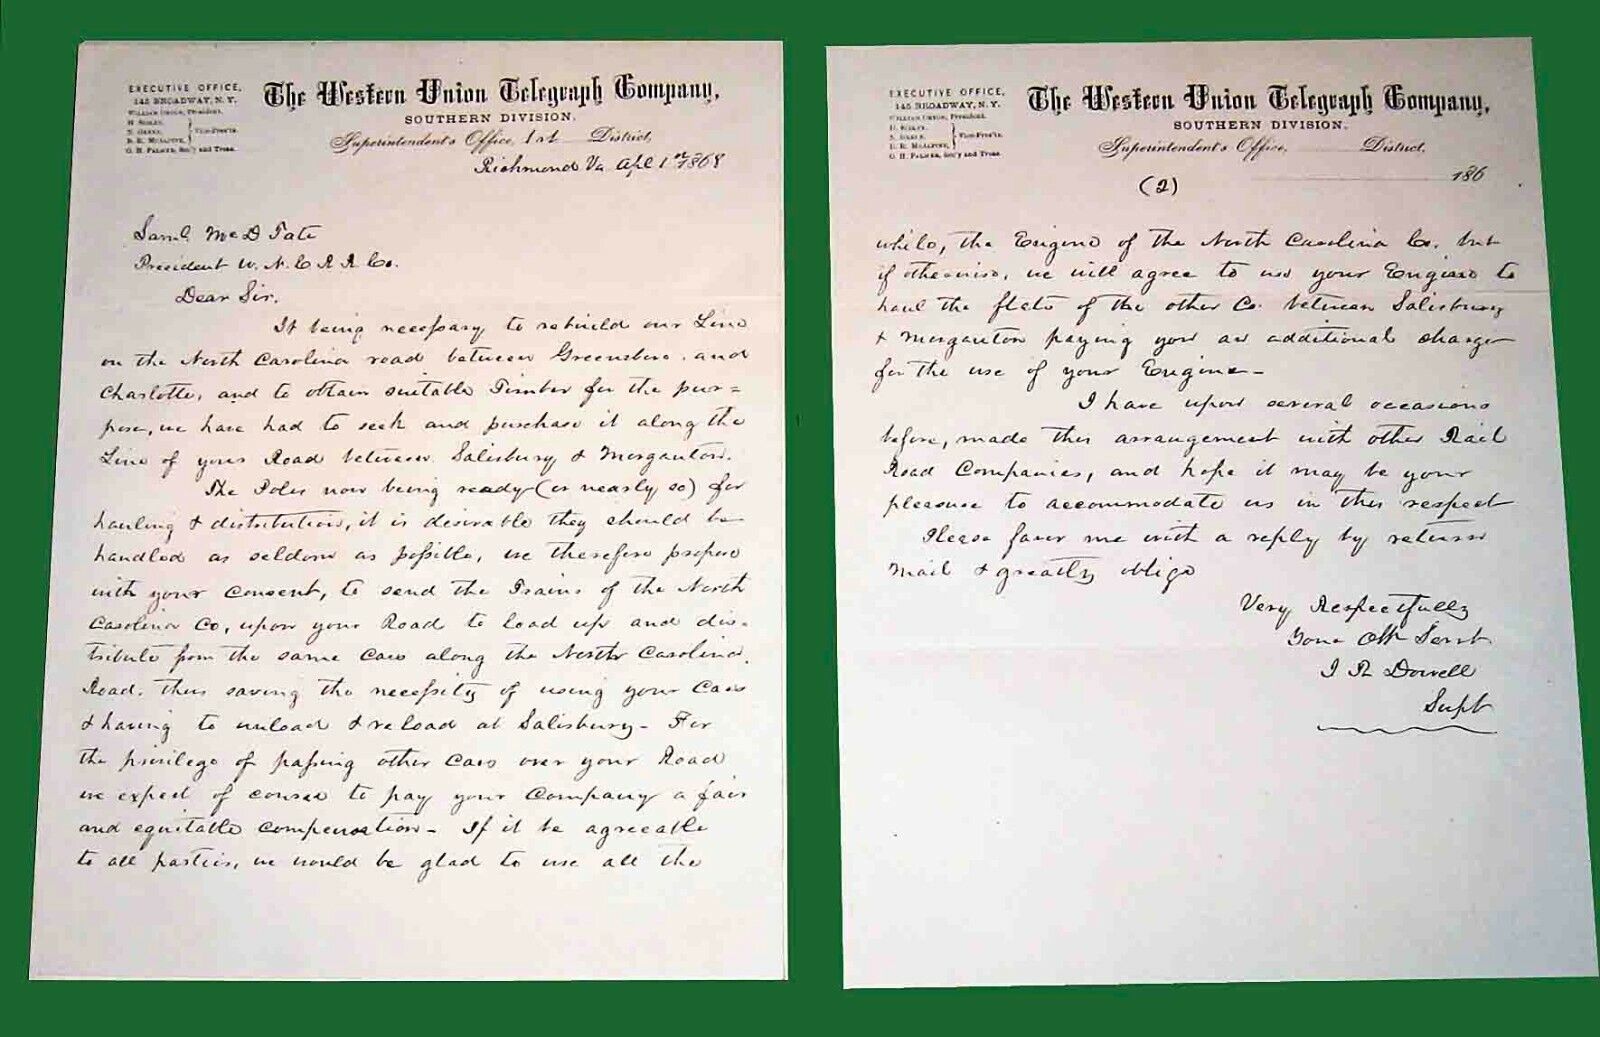 EXECUTIVE OFFICE,
145 BROADWAY, N.Y.
WILLIAM ORTON, President.
H. SIBLEY,
N. GREEN,
D. R. McALPINE,
Vice-Pres'ts.
O. H. PALMER, Sec'y and Treas.
The Western Union Telegraph Company,
SOUTHERN DIVISION.
Superintendent's Office, 1st District,
Richmond Va Apl 1st 1868
Saml McD Tate
President W. N. C R R Co.
Dear Sir.
It being necessary to rebuild our Line
on the North Carolina road between Greensboro. and
Charlotte, and to obtain suitable Timber for the pur=
pose, we have had to seek and purchase it along the
Line of your Road between Salisbury & Morganton.
The Poles now being ready (or nearly so) for
hauling & distribution, it is desirable they should be
handled as seldom as possible, we therefore propose
with your consent, to send the Trains of the North
Carolina Co, upon your Road to load up and dis-
tribute from the same Cars along the North Carolina
Road. thus saving the necessity of using your Cars
& having to unload & reload at Salisbury - For
the privilege of passing other Cars over your Road
we expect of course to pay your Company a fair
and equitable compensation - If it be agreeable
to all parties, we would be glad to use all the
EXECUTIVE OFFICE,
145 BROADWAY, N.Y.
WILLIAM ORTON, President.
H. SIBLEY,
N. GREEN,
D. R. McALPINE,
Vice-Pres'ts.
O. H. PALMER, Sec'y and Treas.
The Western Union Telegraph Company,
SOUTHERN DIVISION.
Superintendent's Office, District,
186
(2)
while, the Engine of the North Carolina Co. but
if otherwise, we will agree to use your Engine to
haul the flats of the other Co. between Salisbury
& Morganton paying you an additional charge
for the use of your Engine -
I have upon several occasions
before, made this arrangement with other Rail
Road Companies, and hope it may be your
pleasure to accommodate us in this respect
Please favor me with a reply by return
Mail & greatly oblige
Very Respectfully
Your Obt Servt
J R Dowell
Supt